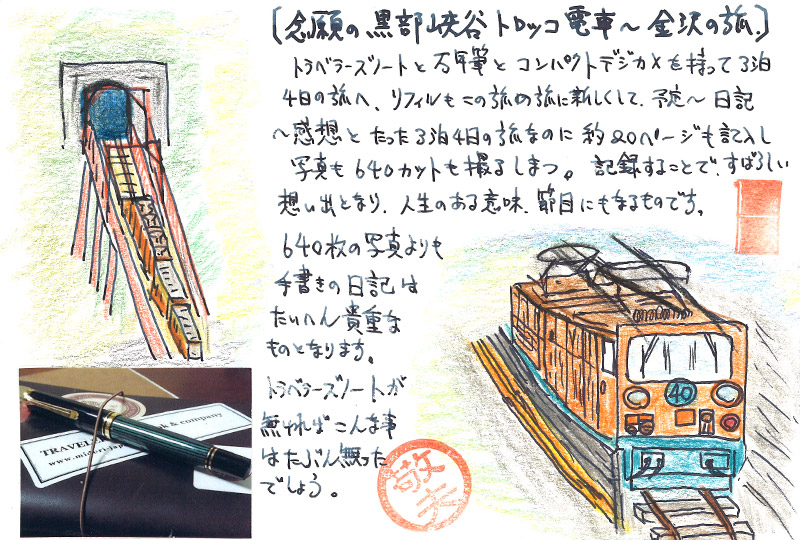 〔念願の黒部峡谷トロッコ電車～金沢の旅〕
トラベラーズノートと万年筆とコンパクトデジカメを持って3泊
4日の旅へ、リフィルもこの旅の旅に新しくして、予定～日記
～感想とたった3泊4日の旅なのに約20ページも記入し
写真も640カットも撮るしまつ。記録することで、すばらしい
想い出となり、人生のある意味、節目にもなるものです。
640枚の写真よりも
手書きの日記は
たいへん貴重な
ものとなります。
トラベラーズノートが
無ければこんな事
はたぶん無った
でしょう。
敬天
40
TRAVEL
k & company